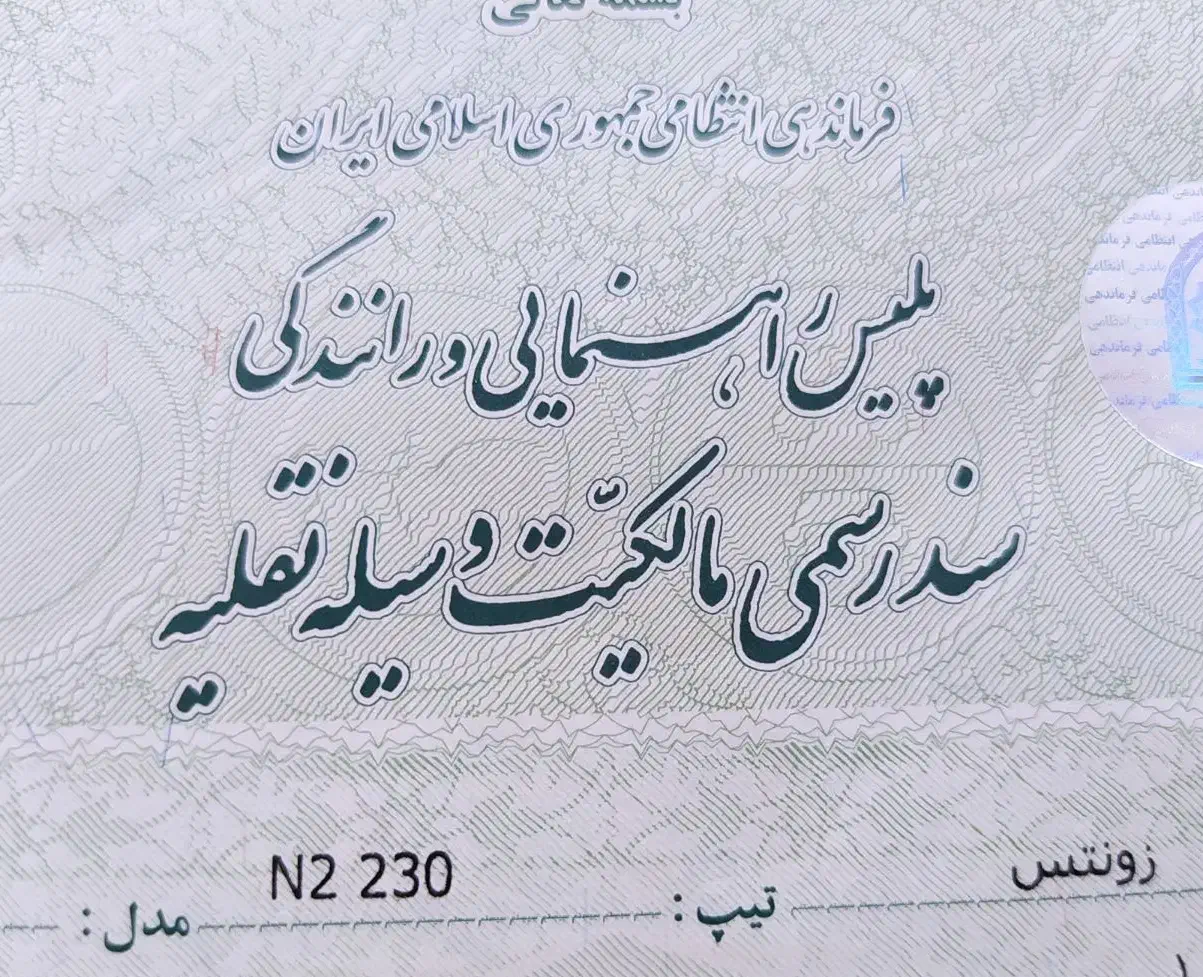 بسمه تعالی
فرماندهی انتظامی جمهوری اسلامی ایران
پلیس راهنمایی و رانندگی
سند رسمی مالکیّت وسیله نقلیه
زونتس تیپ : N2 230 مدل :